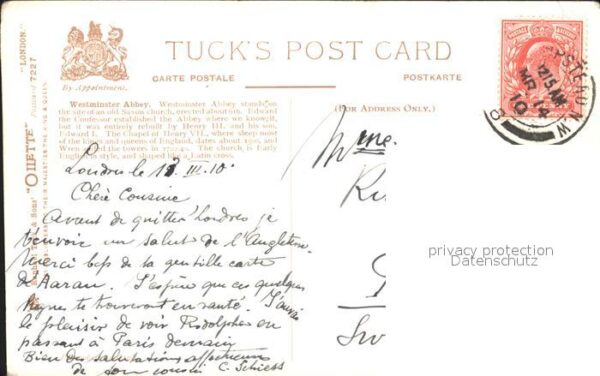 TUCK'S POST CARD
CARTE POSTALE
POSTKARTE
By Appointment.
(FOR ADDRESS ONLY.)
"LONDON."
Postcard 7227
"OILETTE"
Westminster Abbey. Westminster Abbey stands on
the site of an old Saxon church, erected about 616. Edward
the Confessor established the Abbey where we know it,
but it was entirely rebuilt by Henry III. and his son,
Edward I. The Chapel of Henry VII., where sleep most
of the kings and queens of England, dates about 1502, and
Wren the towers in The church is fairly
English in style, and shaped like a Latin cross.
Londres le 13.III.10.
Chère Cousine
Avant de quitter Londres je
t'envoie un salut de l'Angleterre.
Merci bps de ta gentille carte
de Aarau. J'espère que ces quelques
lignes te trouvent en santé. J'aurai
le plaisir de voir Rodolphe en
passant à Paris demain
Bien des salutations affectueuses
de ton cousin C. Schiess
Mme.
HAMPSTEAD N.W.
12.15 AM
MR 14
10
privacy protection
Datenschutz